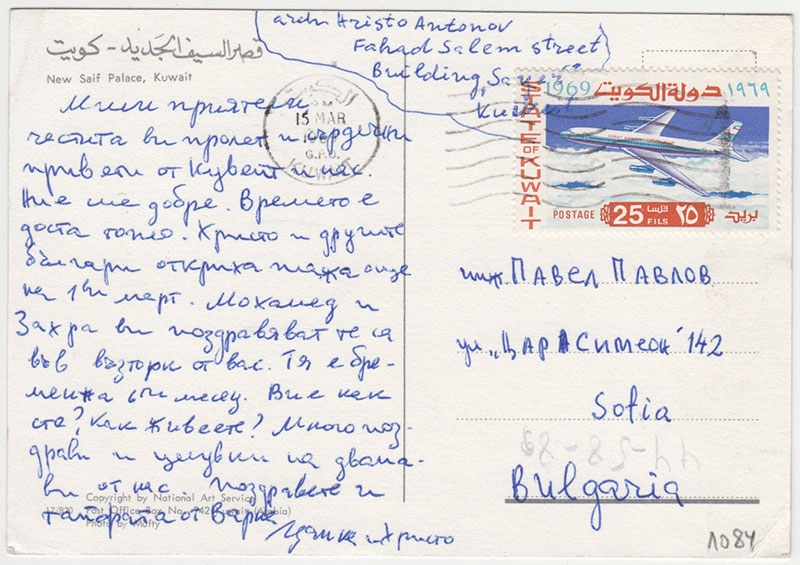 arch Hristo Antonov
Fahad Salem street
Building
Kuwait
قصر السيف الجديد - كويت
New Saif Palace, Kuwait
الكويت
PM
15 MAR
G.P.O.
KUWAIT
1969 دولة الكويت ١٩٦٩
STATE OF KUWAIT
POSTAGE 25 فلسا FILS ٢٥ بريد
Мили приятели
честита ви пролет и сърдечни
привети от Кувейт и нас.
Ние сме добре. Времето е
доста топло. Христо и другите
българи откриха плажа още
на 1ви март. Мохамед и
Захра ви поздравяват те са
във възторг от вас. Тя е бре-
менна 6ти месец. Вие как
сте? Как живеете? Много поз-
драви и целувки на двама-
ви от нас поздравете и
от Варна
Цанка и Христо
инж. ПАВЕЛ ПАВЛОВ
ул. „ЦАР СИМЕОН" 142
Sofia
44-58-89
Bulgaria
Copyright by National Art Service
17/820 Post Office Box No. 942 Kuwait (Arabia)
Photo by Mufty
1084